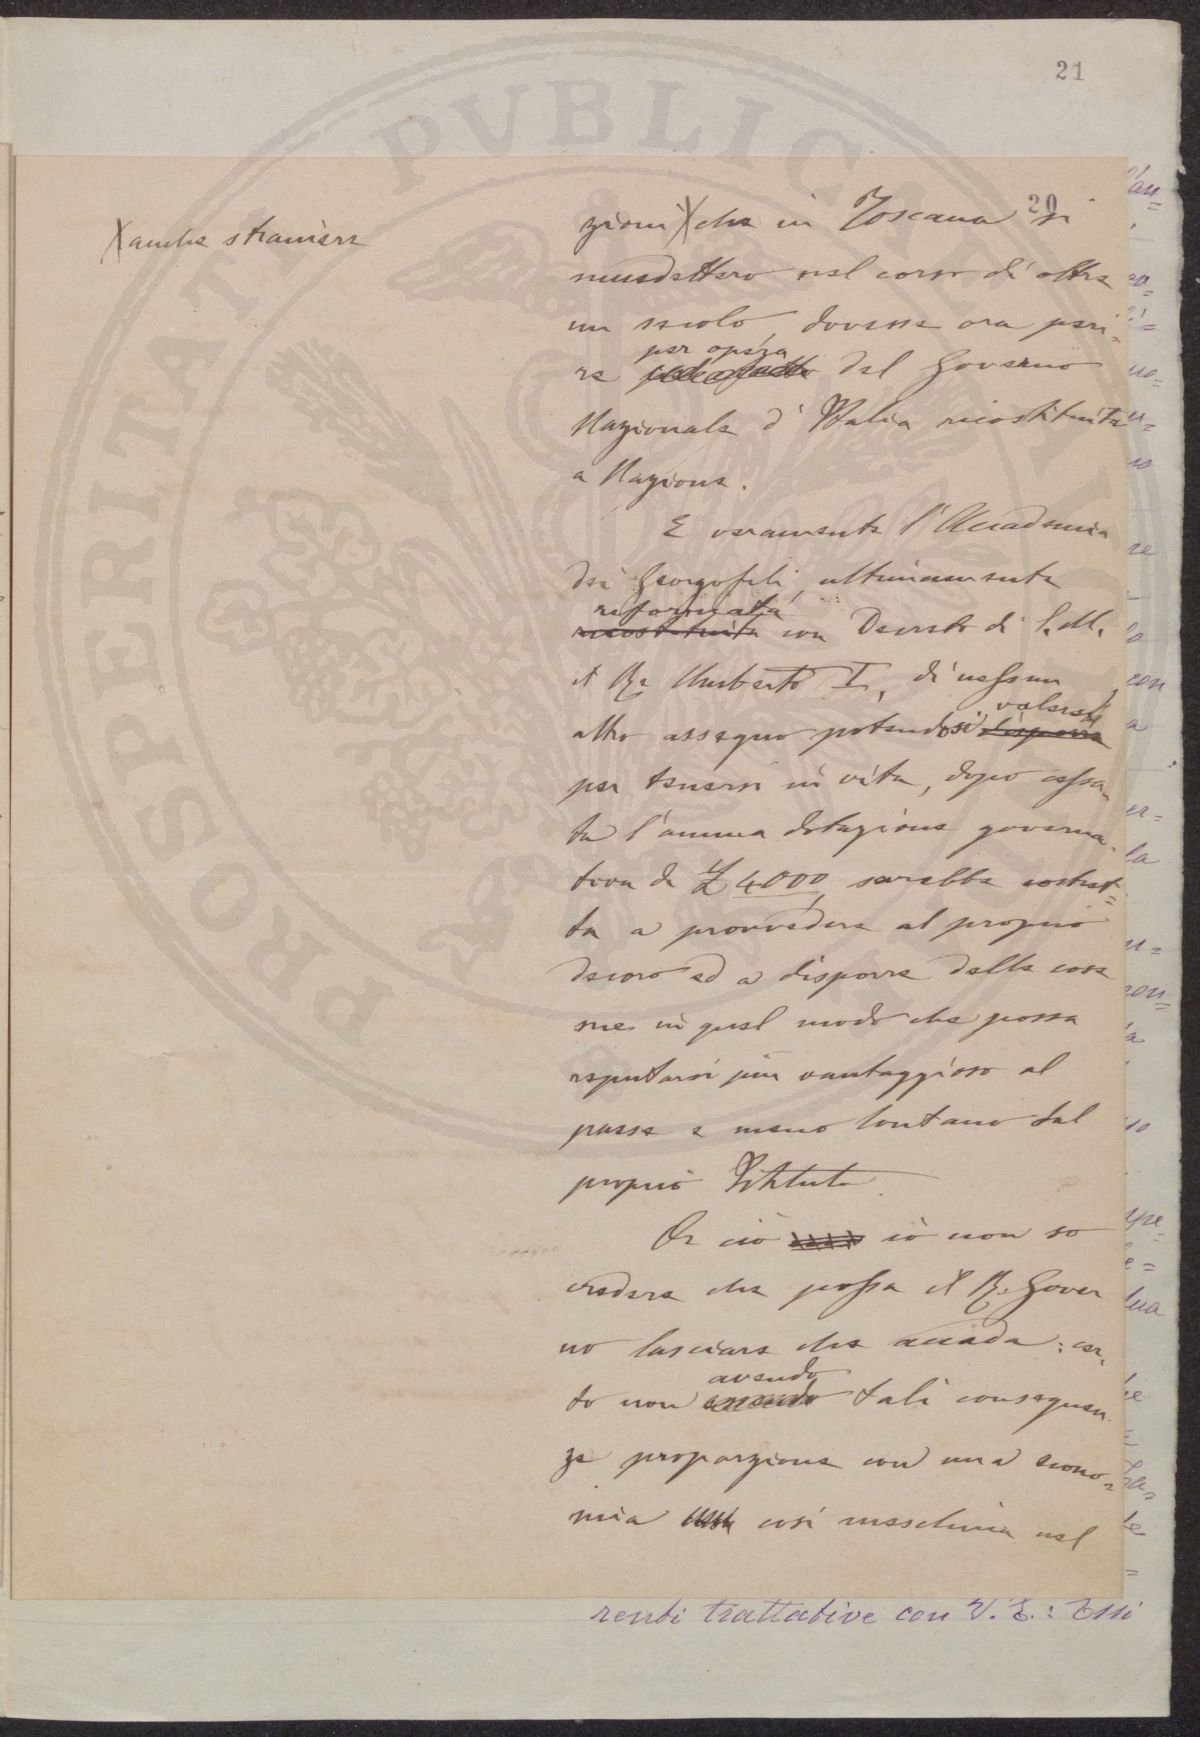 21
20
X anche straniere
zioni X che in Toscana si
succedettero nel corso di oltre
un secolo, dovesse ora peri-
re per opera del Governo
Nazionale d'Italia ricostituita
a Nazione.
E veramente l'Accademia
dei Georgofili, ultimamente
riformata
ricostituita con Decreto di S. M.
il Re Umberto I, di nessun
valersi
altro assegno potendosi disporre
per tenersi in vita, dopo cessa-
ta l'annua dotazione governa-
tiva di £ 4000, sarebbe costret-
ta a provvedere al proprio
decoro ed a disporre delle cose
sue in quel modo che possa
reputarsi più vantaggioso al
paese e meno lontano dal
proprio Istituto
Or ciò io non so
credere che possa il R. Gover
no lasciare che accada: cer-
avendo
to non tali conseguen-
ze proporzione con una econo-
mia così meschina nel
renti trattative con V. E.: Essi
PROSPERITATI PUBLICAE